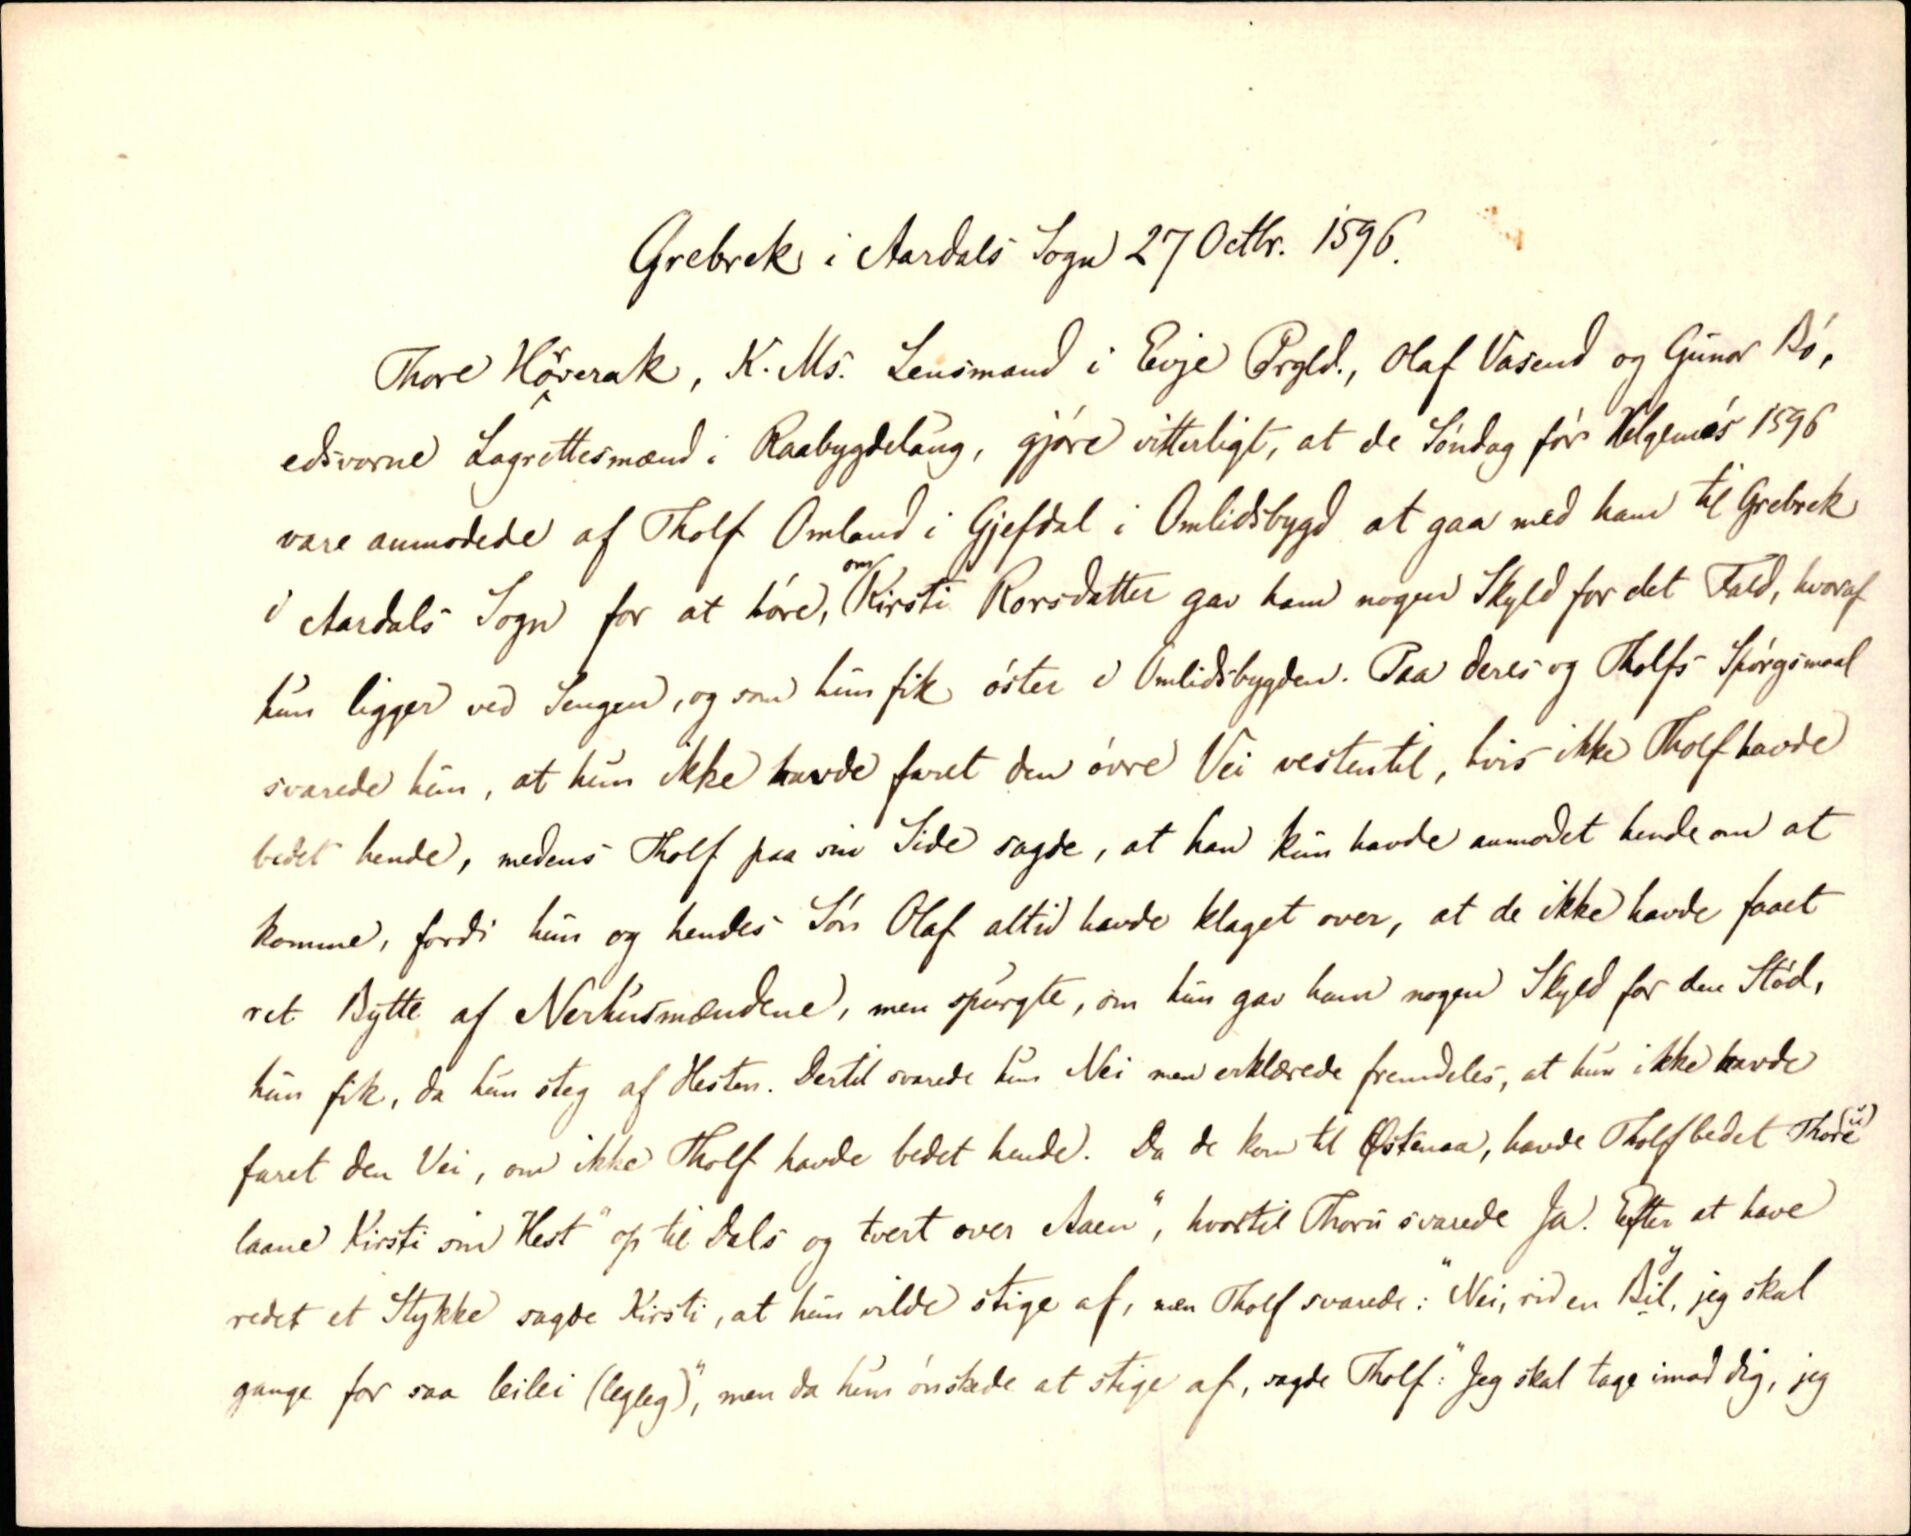 Grebrek i Aardals Sogn 27 Octbr. 1596.
Thore Höverak, K. Ms. Lensmand i Evje Prgld., Olaf Vasend og Gunar Bó,
edsvorne Lagrettesmænd i Raabygdelaug, gjóre vitterligt, at de Sóndag fór Helgemés 1596
vare anmodede af Tholf Omland i Gjefdal i Omlidsbygd at gaa med ham til Grebrek
i Aardals Sogn for at hóre, om Kirsti Rorsdatter gav ham nogen Skyld for det Fald, hvoraf
hun ligger ved Sengen, og som hun fik óster i Omlidsbygden. Paa deres og Tholfs Spórgsmaal
svarede hun, at hun ikke havde faret den óvre Vei vestentil, hvis ikke Tholf havde
bedet hende, medens Tholf paa sin Side sagde, at han kun havde anmodet hende om at
komme, fordi hun og hendes Són Olaf altid havde klaget over, at de ikke havde faaet
ret Bytte af Nerhusmændene, men spurgte, om hun gav ham nogen Skyld for den Stód,
hun fik, da hun steg af Hesten. Dertil svarede hun Nei men erklærede fremdeles, at hun ikke havde
faret den Vei, om ikke Tholf havde bedet hende. Da de kom til Østenaa, havde Tholf bedet Thore (u)
laane Kirsti sin Hest "op til Dals og tvert over Aaen", hvortil Thoru svarede Ja. Efter at have
redet et Stykke sagde Kirsti, at hun vilde stige af, men Tholf svarede: "Nei, rid en Bil, y jeg skal
gange for saa leilei (legleg)", men da hun ónskede at stige af, sagde Tholf: "Jeg skal tage imod dig, jeg